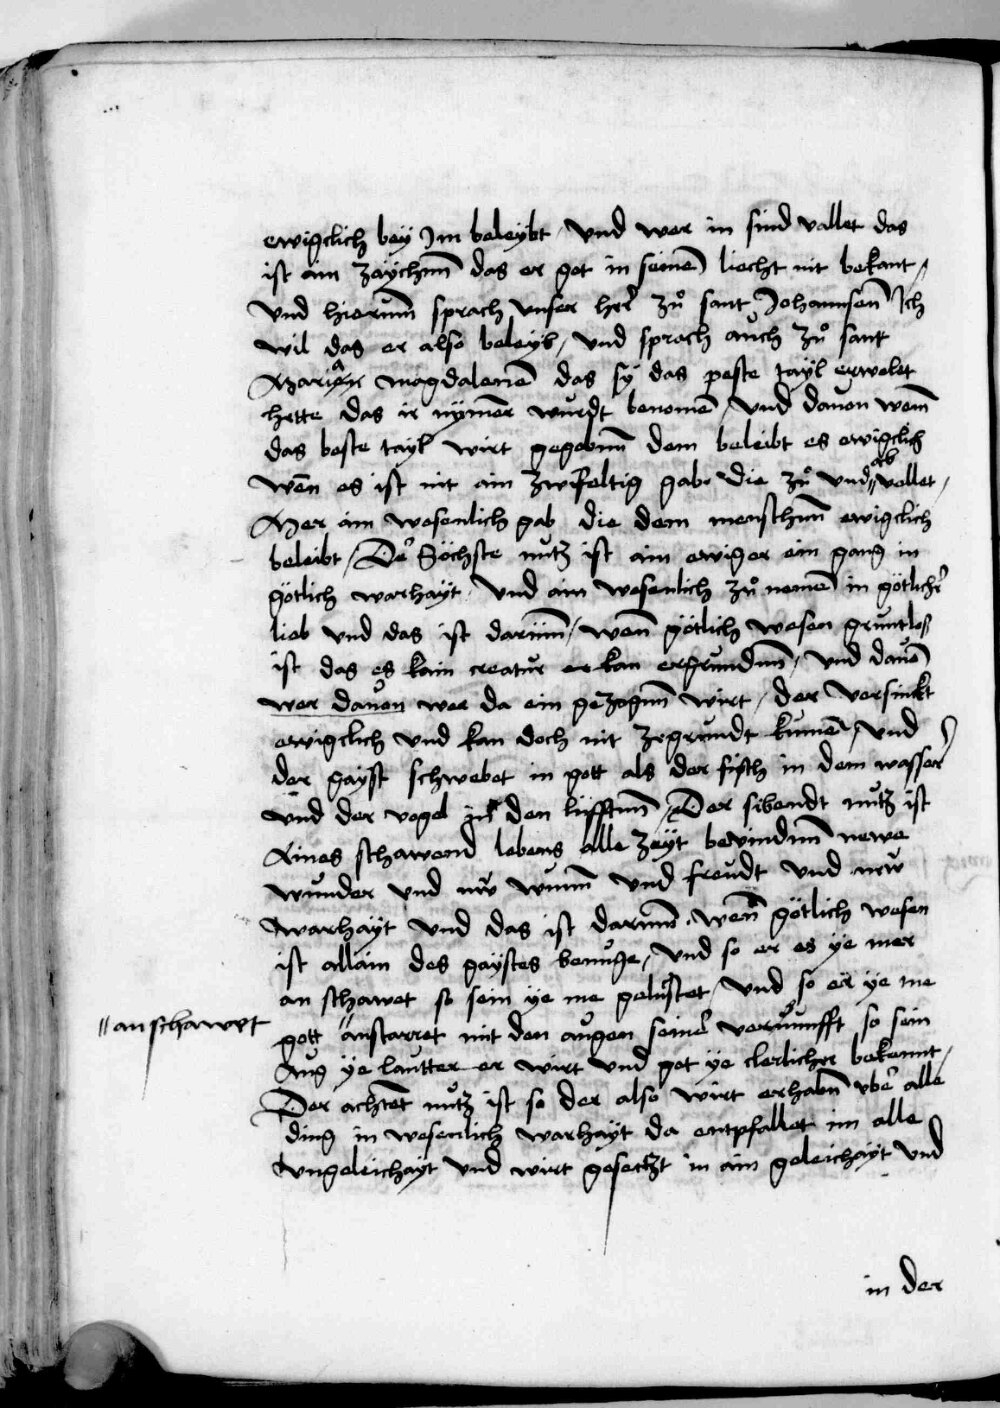 ewigclich beÿ Im beleÿbt / vnd wer in sünd vallet das
ist ain zaÿchnn̄ das er got in seinē liecht nit bekant /
vnd hierum̄ sprach vnser her̄ zů sant Johannsen̄ Ich
wil das er also beleÿb / vnd sprach aŭch zů sant
Maria magdalenē das sÿ das peste taÿl erwelet
hette das ir nÿmer wŭrdt benomē / vnd dauon wem̄
das beste taÿl wirt gegebnn̄ dem beleibt es ewigclich
wen̄ es ist nit ain zwifeltig gab die zů vnd ab vallet /
Mer ain wesenlich gab die dem menschnn̄ ewigclich
beleibt / De' Söchste nŭtz ist ain ewiger ein gang in
götlich warhaÿt / vnd ain wesenlich zů nemē in götlich'
lieb vnd das ist darüm̄ / wen̄ götlich wesen grŭntloß
ist das es kain creatŭr er kan ergrŭndnn̄ / vnd dauō
wer dauon wer da ein gezognn̄ wirt / der versinkt
ewigclich vnd kan doch nit zegrŭndt kŭmē / vnd
der gaÿst schwebet in gott als der fisch in dem wasser
vnd der vogel in den lüfftnn̄ / Der sibendt nŭtz ist
Aines schawend lebens alle zeÿt bevindnn̄ newe
wŭnder vnd new wŭnn̄ vnd freŭdt vnd new
warhaÿt vnd das ist darŭm̄ / wen̄ götlich wesen
ist allain des gaÿstes benŭge / vnd so er es ÿe mer
an schawet so sein ÿe me gelŭstet / vnd so er ÿe me
"anschawet
gott "anstarret mit den aŭgen seine' vernŭnfft so sein
Aŭg ÿe laŭtter er wirt vnd got ÿe clerlicher bekennt /
Der achtet nŭtz ist so der also wirt erhabn̄ vbe' alle
ding in wesenlich warhaÿt da entpfallet im alle
vngeleichaÿt vnd wirt gesetzt in ain geleichaÿt vnd
in der